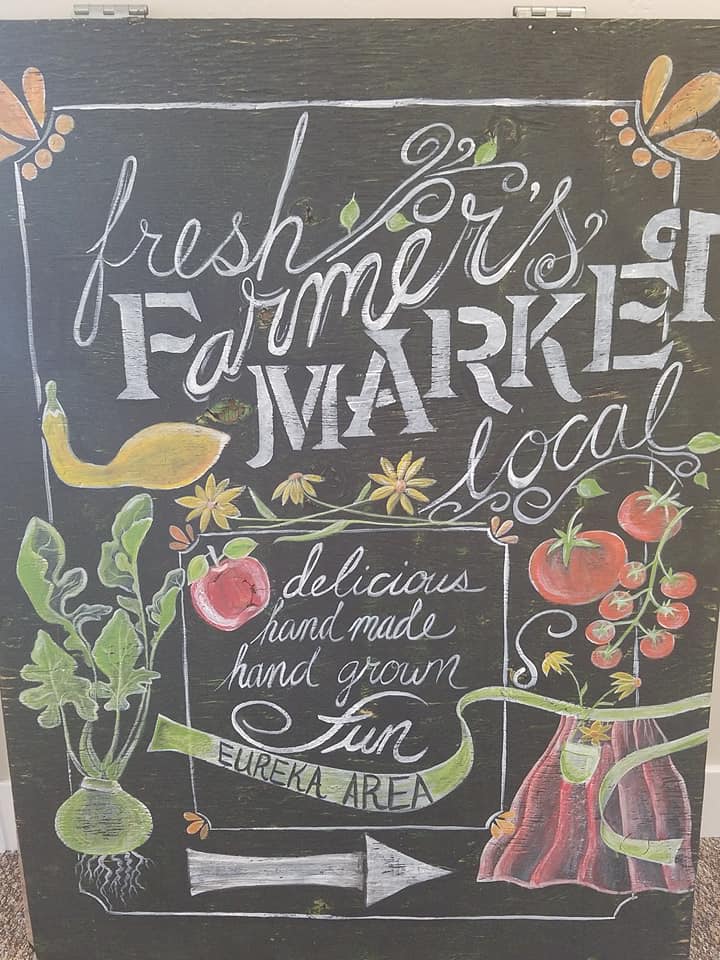 fresh
Farmer's
MARKET
local
delicious
hand made
hand grown
Fun
EUREKA AREA